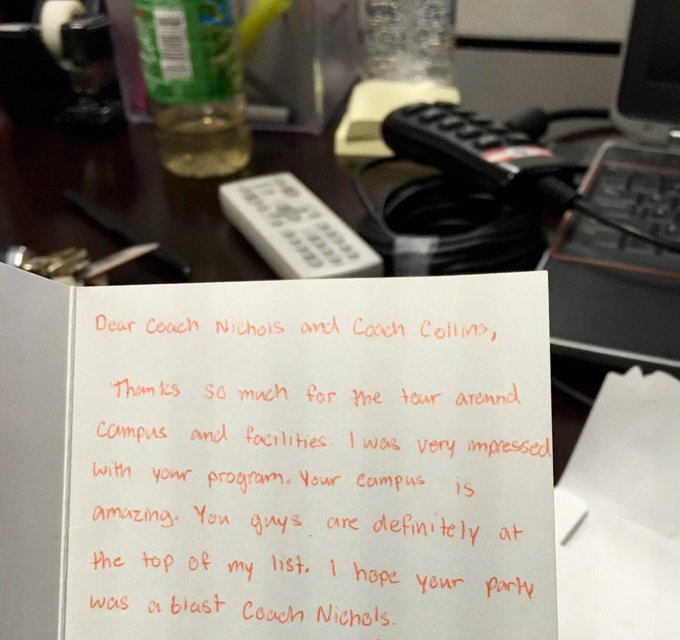 Dear Coach Nichols and Coach Collins,
Thanks so much for the tour around
campus and facilities. I was very impressed
with your program. Your campus is
amazing. You guys are definitely at
the top of my list. I hope your party
was a blast Coach Nichols.